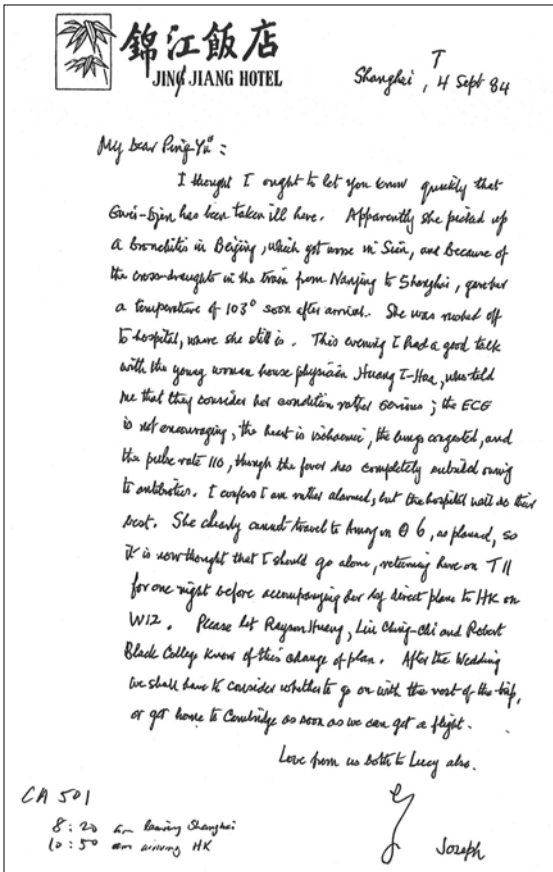 錦江飯店
JING JIANG HOTEL
T
Shanghai, 4 Sept 84
My dear Ping-Yü :
I thought I ought to let you know quickly that
Gwei-Djen has been taken ill here. Apparently she picked up
a bronchitis in Beijing, which got worse in Sian, and because of
the cross-draughts in the train from Nanjing to Shanghai, gave her
a temperature of 103° soon after arrival. She was rushed off
to hospital, where she still is. This evening I had a good talk
with the young woman house physician Huang I-Hua, who told
me that they consider her condition rather serious; the ECG
is not encouraging, the heart is ischaemic, the lungs congested, and
the pulse rate 110, though the fever has completely subsided owing
to antibiotics. I confess I am rather alarmed, but the hospital will do their
best. She clearly cannot travel to Amoy on 6, as planned, so
it is now thought that I should go alone, returning here on T 11
for one night before accompanying her by direct plane to HK on
W12. Please let Rayson Huang, Liu Ching-Chi and Robert
Black College know of this change of plan. After the Wedding
we shall have to consider whether to go on with the rest of the trip,
or get home to Cambridge as soon as we can get a flight.
Love from us both to Lucy also.
CA 501
8:20 am leaving Shanghai
10:50 am arriving HK
Joseph